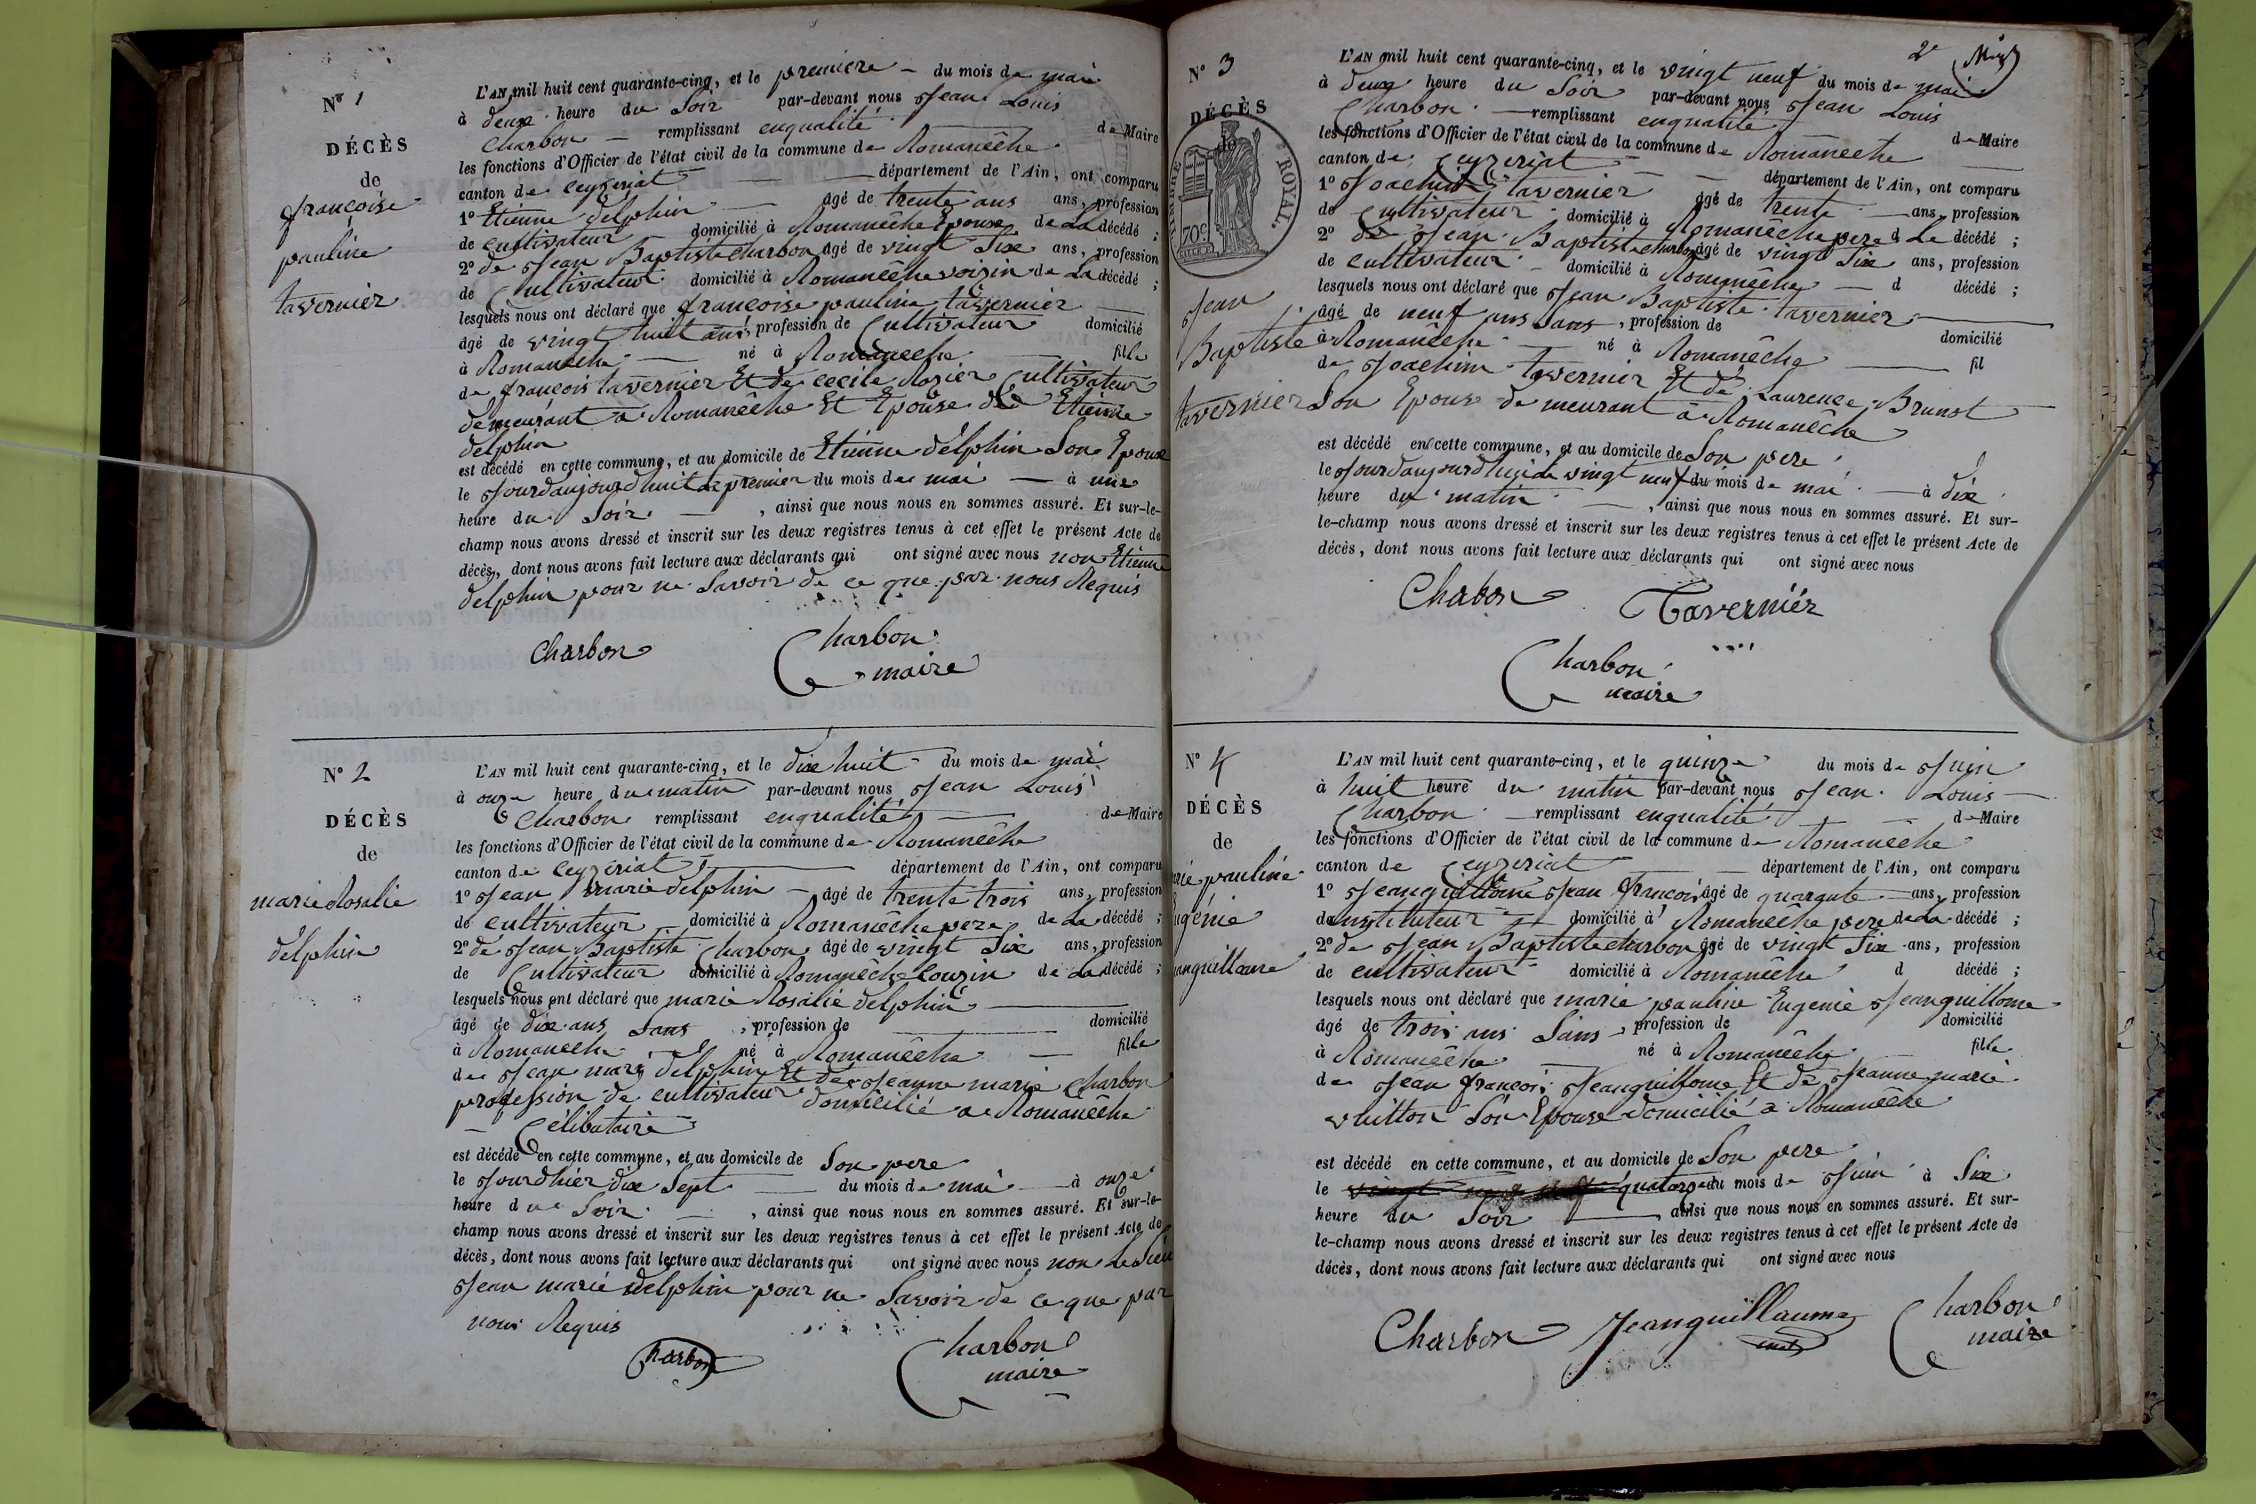 N° 1
DÉCÈS
de
françoise
pauline
tavernier
L'AN mil huit cent quarante-cinq, et le premiere du mois de mai
à deux heure du Soir par-devant nous Jean Louis
Charbon remplissant enqualité de Maire
les fonctions d'Officier de l'état civil de la commune de Romanêche
canton de Ceyzeriat département de l'Ain, ont comparu
1° Etienne delphin âgé de trente ans ans, profession
de Cultivateur domicilié à Romanêche Epoux de La décédé ;
2° de Jean Baptiste charbon âgé de vingt Six ans, profession
de Cultivateur domicilié à Romanêche voizin de La décédé ;
lesquels nous ont déclaré que françoise pauline tavernier
âgé de vingt huit ans, profession de Cultivateur domicilié
à Romanêche né à Romanêche fille
de françois tavernier Et de Cecile Rozier Cultivateur
demeurant a Romanêche Et Epouse de Etienne
delphin
est décédé en cette commune, et au domicile de Etienne delphin Son Epoux
le Jourdaujourdhuit le premier du mois de mai à une
heure du Soir, ainsi que nous nous en sommes assuré. Et sur-le-
champ nous avons dressé et inscrit sur les deux registres tenus à cet effet le présent Acte de
décès, dont nous avons fait lecture aux déclarants qui ont signé avec nous non Etienne
delphin pour ne Savoir de ce que par nous Requis
Charbon Charbon
maire
N° 2
DÉCÈS
de
marie Rosalie
delphin
L'AN mil huit cent quarante-cinq, et le dix huit du mois de mai
à onze heure du matin par-devant nous Jean Louis
Charbon remplissant enqualité de Maire
les fonctions d'Officier de l'état civil de la commune de Romanêche
canton de Ceyzeriat département de l'Ain, ont comparu
1° Jean marie delphin âgé de trente trois ans, profession
de Cultivateur domicilié à Romanêche pere de La décédé ;
2° de Jean Baptiste Charbon âgé de vingt Six ans, profession
de Cultivateur domicilié à Romanêche Couzin de La décédé ;
lesquels nous ont déclaré que marie Rosalie delphin
âgé de dix ans Sans, profession de domicilié
à Romanêche né à Romanêche fille
de Jean marie delphin Et de Jeanne marie Charbon
profession de cultivateur domicilié a Romanêche
Célibataire
est décédé en cette commune, et au domicile de Son pere
le Jourdhier dix Sept du mois de mai à onze
heure du Soir, ainsi que nous nous en sommes assuré. Et sur-le-
champ nous avons dressé et inscrit sur les deux registres tenus à cet effet le présent Acte de
décès, dont nous avons fait lecture aux déclarants qui ont signé avec nous non
Jean marie delphin pour ne Savoir de ce que par
nous Requis
Charbon Charbon
maire
2e
N° 3
DÉCÈS
de
TIMBRE ROYAL
70 c
Jean
Baptiste
tavernier
L'AN mil huit cent quarante-cinq, et le vingt neuf du mois de mai
à deux heure du Soir par-devant nous Jean Louis
Charbon remplissant enqualité de Maire
les fonctions d'Officier de l'état civil de la commune de Romanêche
canton de Ceyzeriat département de l'Ain, ont comparu
1° Joachim tavernier âgé de trente ans, profession
de Cultivateur domicilié à Romanêche pere d Le décédé ;
2° de Jean Baptiste charbon âgé de vingt Six ans, profession
de Cultivateur domicilié à Romanêche d décédé ;
lesquels nous ont déclaré que Jean Baptiste tavernier
âgé de neuf ans Sans, profession de domicilié
à Romanêche né à Romanêche fil
de Joachim tavernier Et de Laurence Brunot
Son Epouse demeurant a Romanêche
est décédé en cette commune, et au domicile de Son pere
le Jourdaujourdhui le vingt neuf du mois de mai à dix
heure du matin, ainsi que nous nous en sommes assuré. Et sur-
le-champ nous avons dressé et inscrit sur les deux registres tenus à cet effet le présent Acte de
décès, dont nous avons fait lecture aux déclarants qui ont signé avec nous
Chabon Taverniér
Charbon
maire
N° 4
DÉCÈS
de
pauline
L'AN mil huit cent quarante-cinq, et le quinze du mois de Juin
à huit heure du matin par-devant nous Jean Louis
Charbon remplissant enqualité de Maire
les fonctions d'Officier de l'état civil de la commune de Romanêche
canton de Ceyzeriat département de l'Ain, ont comparu
1° Jeanguillome Jean françois âgé de quarante ans, profession
de institeteur domicilié à Romanêche pere de La décédé ;
2° de Jean Baptiste charbon âgé de vingt Six ans, profession
de cultivateur domicilié à Romanêche d décédé ;
lesquels nous ont déclaré que marie pauline Eugenie Jeanguillome
âgé de trois ans Sans profession de domicilié
à Romanêche né à Romanêche fille
de Jean françois Jeanguillome Et de Jeanne marie
vuitton Son Epouse domicilié a Romanêche
est décédé en cette commune, et au domicile de Son pere
le quatorze du mois de Juin à Six
heure du Soir ainsi que nous nous en sommes assuré. Et sur-
le-champ nous avons dressé et inscrit sur les deux registres tenus à cet effet le présent Acte de
décès, dont nous avons fait lecture aux déclarants qui ont signé avec nous
Charbon Jeanguillaume Charbon
maire